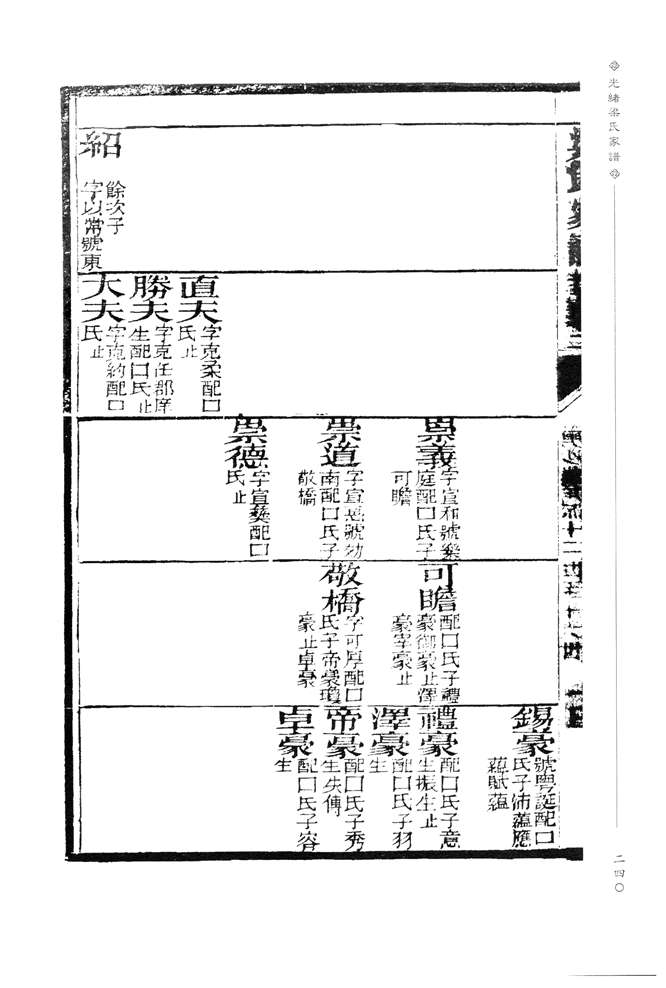 光緒梁氏家譜
二四〇
紹
餘次子
字以常號東
直夫
字克柔配口
氏止
勝夫
字克任郡庠
生配口氏止
大夫
字克約配口
氏止
崇義
字宣和號樂
庭配口氏子
可瞻
崇道
南配口氏子
敬橋
崇德
字宣彝配口
氏止
可瞻
配口氏子禮
豪御豪止澤
豪宰豪止
敬橋
字可厚配口
氏子帝豪瓊
豪止卓豪
錫豪
號粤誕配口
氏子沛蘊應
蘊賦蘊
禮豪
配口氏子意
生振生止
澤豪
配口氏子羽
生
帝豪
配口氏子秀
生失傳
卓豪
配口氏子容
生